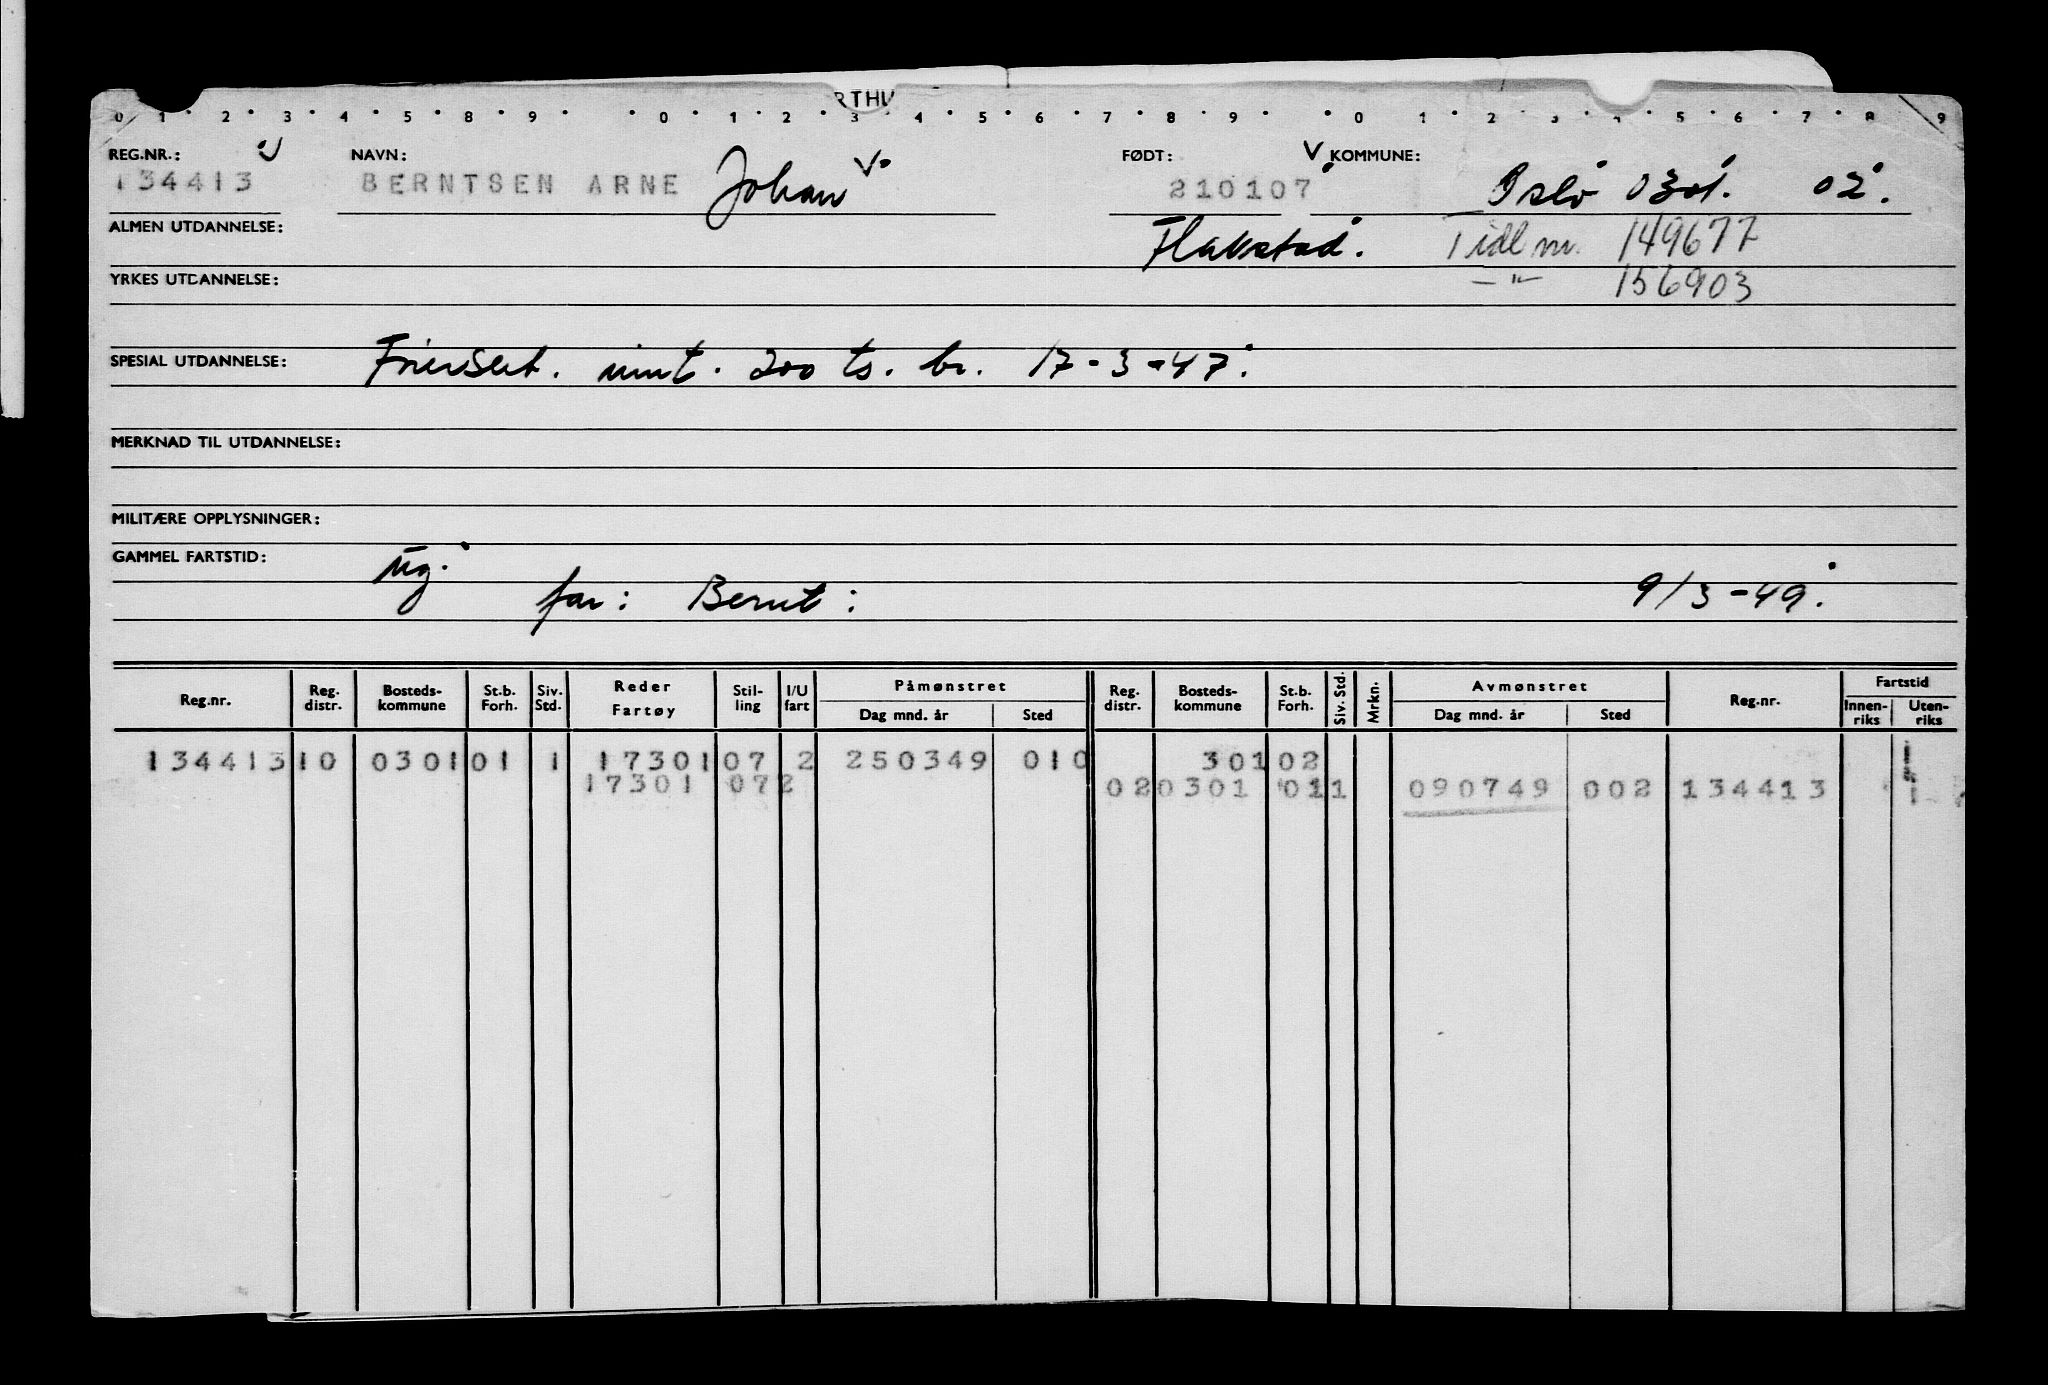 RTHU
0 1 2 3 4 5 8 9 0 1 2 3 4 5 6 7 8 9 0 1 2 3 4 5 6 7 8 9
REG.NR.: NAVN: FØDT: KOMMUNE:
134413 BERNTSEN ARNE Johan 210107 Oslo 0301. 02.
ALMEN UTDANNELSE: Flakstad. Tidl nr. 149677
YRKES UTDANNELSE: — " — 156903
SPESIAL UTDANNELSE: innt. 200 ts. br. 17-3-47.
MERKNAD TIL UTDANNELSE:
MILITÆRE OPPLYSNINGER:
GAMMEL FARTSTID: ug.
far: Bernt: 9/3-49.
Reg.nr. Reg. distr. Bosteds- kommune St.b. Forh. Siv. Std. Reder Fartøy Stil- ling I/U fart Påmønstret Dag mnd. år Sted Reg. distr. Bosteds- kommune St.b. Forh. Siv. Std. Mrkn. Avmønstret Dag mnd. år Sted Reg.nr. Fartstid Innen- riks Uten- riks
134413 10 0301 01 1 17301 07 2 250349 010 301 02
17301 072 02 0301 011 090749 002 134413